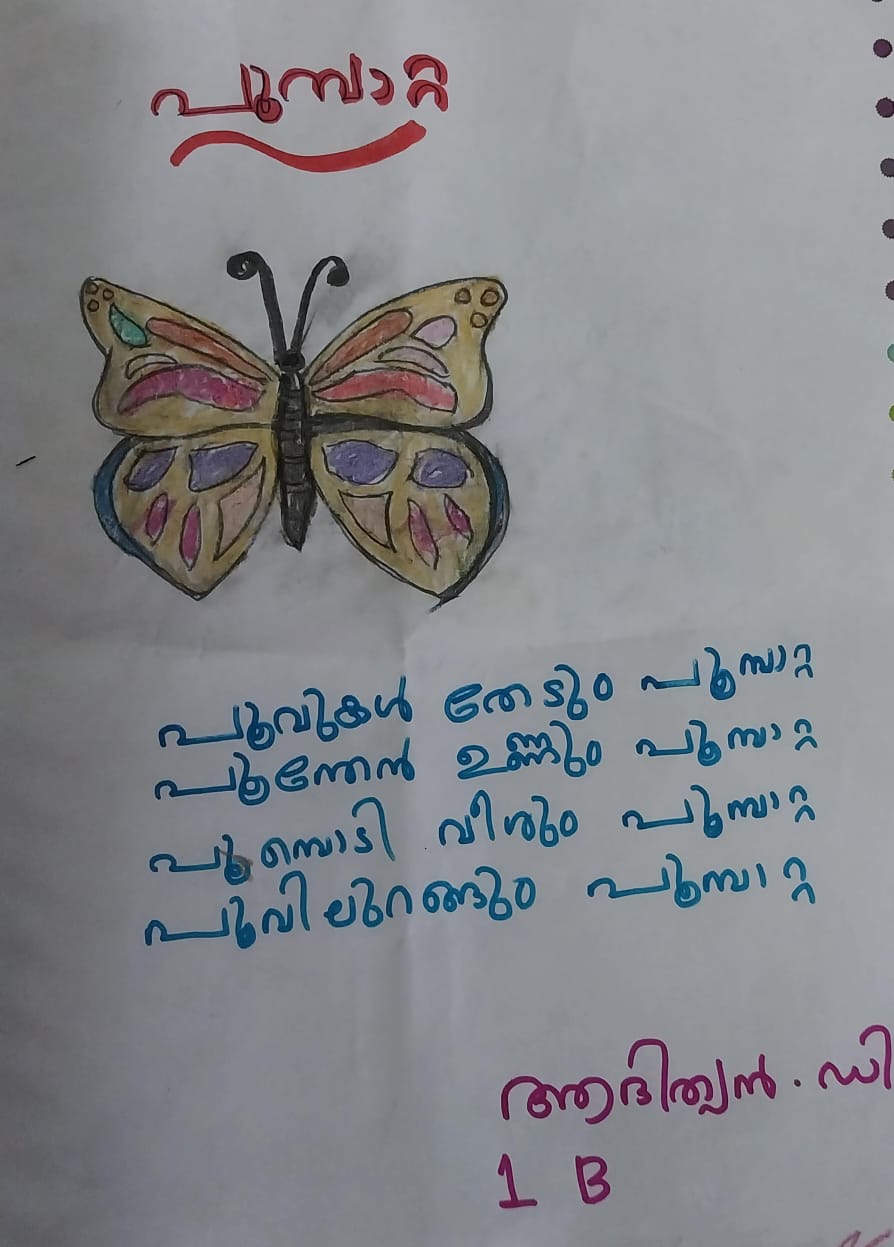 പൂമ്പാറ്റ
പൂവുകൾ തേടും പൂമ്പാറ്റ
പൂന്തേൻ ഉണ്ണും പൂമ്പാറ്റ
പൂമ്പൊടി വീശും പൂമ്പാറ്റ
പൂവിലുറങ്ങും പൂമ്പാറ്റ
ആദിത്യൻ. ഡി
1 B